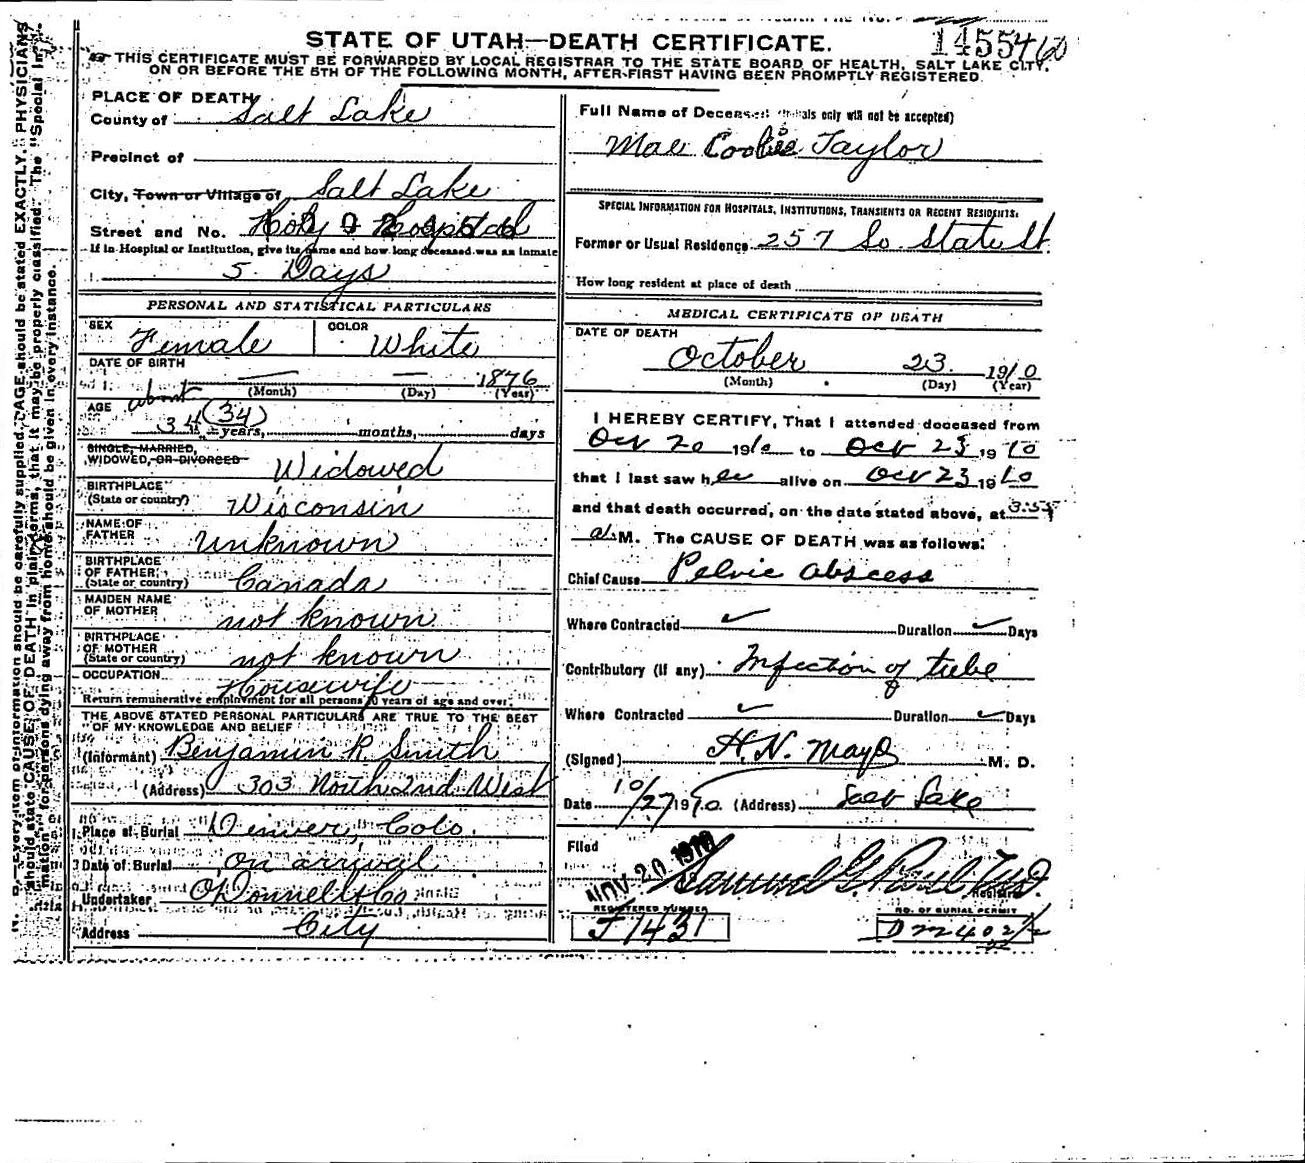 STATE OF UTAH—DEATH CERTIFICATE.
THIS CERTIFICATE MUST BE FORWARDED BY LOCAL REGISTRAR TO THE STATE BOARD OF HEALTH, SALT LAKE CITY,
ON OR BEFORE THE 5TH OF THE FOLLOWING MONTH, AFTER FIRST HAVING BEEN PROMPTLY REGISTERED.
PLACE OF DEATH
County of Salt Lake
Precinct of
City, Town or Village of Salt Lake
Street and No. Holy Hospital
If in Hospital or Institution, give its name and how long deceased was an inmate
5 Days
PERSONAL AND STATISTICAL PARTICULARS
SEX Female COLOR White
DATE OF BIRTH — — 1876
(Month) (Day) (Year)
AGE about 34 (34) years, months, days
SINGLE, MARRIED,
WIDOWED, OR DIVORCED Widowed
BIRTHPLACE
(State or country) Wisconsin
NAME OF
FATHER Unknown
BIRTHPLACE
OF FATHER
(State or country) Canada
MAIDEN NAME
OF MOTHER not known
BIRTHPLACE
OF MOTHER
(State or country) not known
OCCUPATION Housewife
Return remunerative employment for all persons 10 years of age and over.
THE ABOVE STATED PERSONAL PARTICULARS ARE TRUE TO THE BEST
OF MY KNOWLEDGE AND BELIEF
(Informant) Benjamin R. Smith
(Address) 303 North 2nd West
Place of Burial Denver, Colo.
Date of Burial on arrival
Undertaker O'Donnell & Co
Address City
Full Name of Deceased (Initials only will not be accepted)
Mae Taylor
SPECIAL INFORMATION FOR HOSPITALS, INSTITUTIONS, TRANSIENTS OR RECENT RESIDENTS.
Former or Usual Residence 257 So. State St.
How long resident at place of death
MEDICAL CERTIFICATE OF DEATH
DATE OF DEATH
October 23 1910
(Month) (Day) (Year)
I HEREBY CERTIFY, That I attended deceased from
Oct 20 1910 to Oct 23 1910
that I last saw her alive on Oct 23 1910
and that death occurred, on the date stated above, at
a. M. The CAUSE OF DEATH was as follows:
Chief Cause Pelvic abscess
Where Contracted Duration Days
Contributory (if any) Infection of tube
Where Contracted Duration Days
(Signed) H. N. Mayo M. D.
Date 10/27 1910. (Address) Salt Lake
Filed
NOV 20 1910
Samuel G. Paul M.D.
Registrar
REGISTERED NUMBER
J 1431
NO. OF BURIAL PERMIT